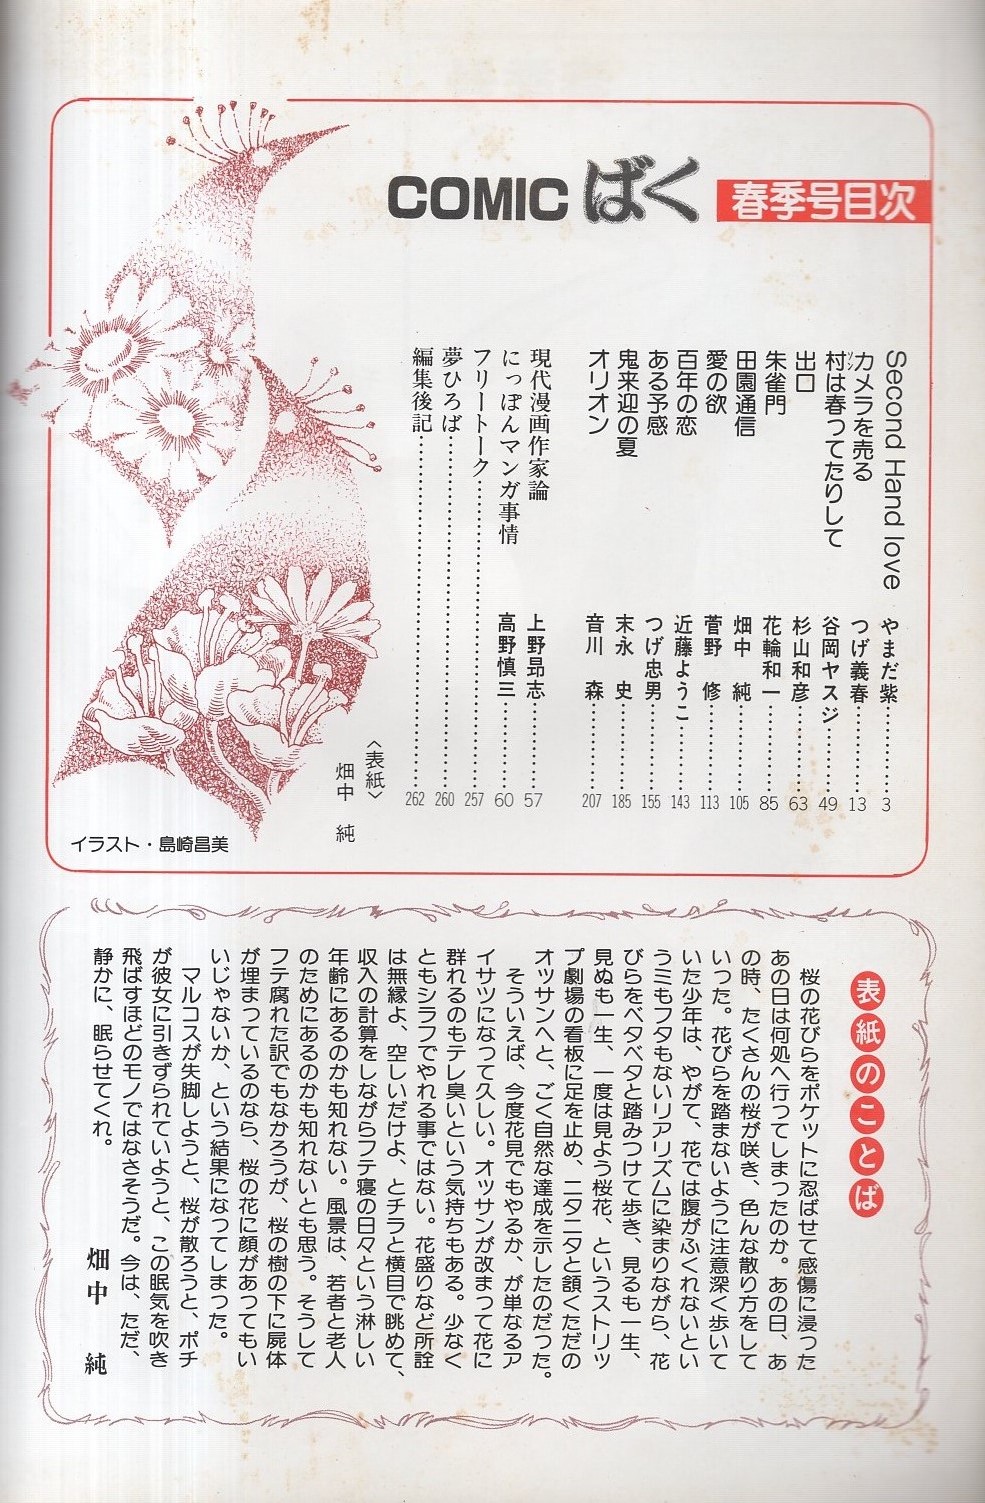 COMIC ばく 春季号目次
Second Hand love やまだ紫………3
カメラを売る つげ義春………13
村は春ってたりして 谷岡ヤスジ………49
ソン
出口 杉山和彦………63
朱雀門 花輪和一………85
田園通信 畑中 純………105
愛の欲 菅野 修………113
百年の恋 近藤ようこ………143
ある予感 つげ忠男………155
鬼来迎の夏 末永 史………185
オリオン 音川 森………207
現代漫画作家論 上野昂志………57
にっぽんマンガ事情 高野慎三………60
フリートーク………257
夢ひろば………260
編集後記………262
〈表紙〉
畑中 純
イラスト・島崎昌美
表紙のことば
桜の花びらをポケットに忍ばせて感傷に浸った
あの日は何処へ行ってしまったのか。あの日、あ
の時、たくさんの桜が咲き、色んな散り方をして
いった。花びらを踏まないように注意深く歩いて
いた少年は、やがて、花では腹がふくれないとい
うミもフタもないリアリズムに染まりながら、花
びらをベタベタと踏みつけて歩き、見るも一生、
見ぬも一生、一度は見よう桜花、というストリッ
プ劇場の看板に足を止め、ニタニタと頷くただの
オッサンへと、ごく自然な達成を示したのだった。
そういえば、今度花見でもやるか、が単なるア
イサツになって久しい。オッサンが改まって花に
群れるのもテレ臭いという気持ちもある。少なく
ともシラフでやれる事ではない。花盛りなど所詮
は無縁よ、空しいだけよ、とチラと横目で眺めて、
収入の計算をしながらフテ寝の日々という淋しい
年齢にあるのかも知れない。風景は、若者と老人
のためにあるのかも知れないとも思う。そうして
フテ腐れた訳でもなかろうが、桜の樹の下に屍体
が埋まっているのなら、桜の花に顔があってもい
いじゃないか、という結果になってしまった。
マルコスが失脚しようと、桜が散ろうと、ポチ
が彼女に引きずられていようと、この眠気を吹き
飛ばすほどのモノではなさそうだ。今は、ただ、
静かに、眠らせてくれ。
畑中 純